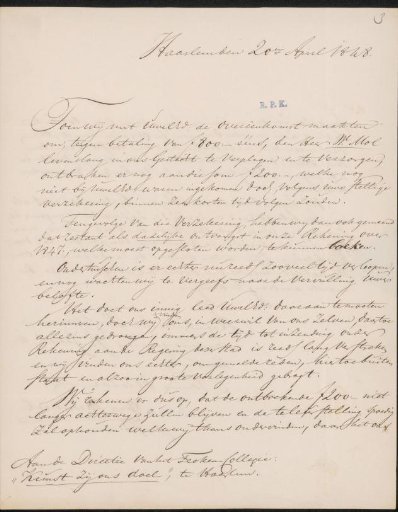 3
Haarlem den 20en April 1848.
R.P.K.
Toen wij met UwelEd. de overeenkomst maakten
om, tegen betaling van ƒ 800.- den Heer W. Mol
levenslang in ons Gesticht te verplegen en te verzorgen,
ontbraken er nog aan die som ƒ 200.-, welke nog
niet bij UwelEd. waren ingekomen, doch, volgens uwe stellige
verzekering, binnen zeer korten tijd volgen zouden.
Tengevolge van die verzekering, hebben wij dan ook gemeend
dat restant als dadelijk ontvangst in onze Rekening over
1847, welke moest opgesloten worden te kunnen boeken.
Ondertusschen is er echter reeds zooveel tijd verloopen,
en nog wachten wij te vergeefs naar de vervulling uwer
belofte.
Het doet ons innig leed UwelEd. daaraan te moeten
herinneren, doch wij zijn, en weerwil van ons zelven, daartoe
allezins gedrongen, omdat de tijd tot inzending onzer
Rekening aan de Regering dezer Stad is reeds lang verstreken
en wij vinden ons echter, om gemelde reden, hiertoe buiten
staat en alzoo in groote verlegenheid gebragt.
Wij rekenen er dus op, dat de ontbrekende ƒ 200.- niet
langer achterwege zullen blijven en de teleurstelling spoedig
zal ophouden welke wij thans ondervinden, daar het als
Aan de Directie van het Collegie:
"Kunst zij ons doel", te Haarlem.